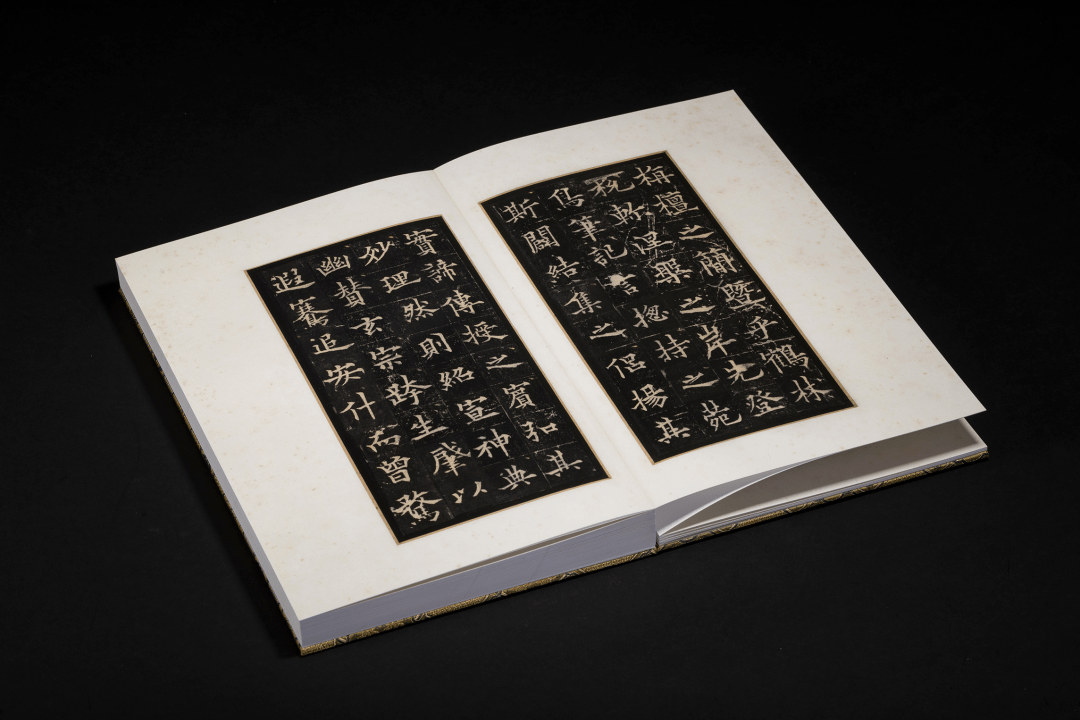 栴檀之簡暨乎鶴林
斬涅槃之岸先登
寫筆記言揔持之苑
斯闢結集之侶揚其
實諦傳授之賓弘其
妙理然則紹宣神典
幽賛玄宗跨生肇以
遐騫追安什而曾騖